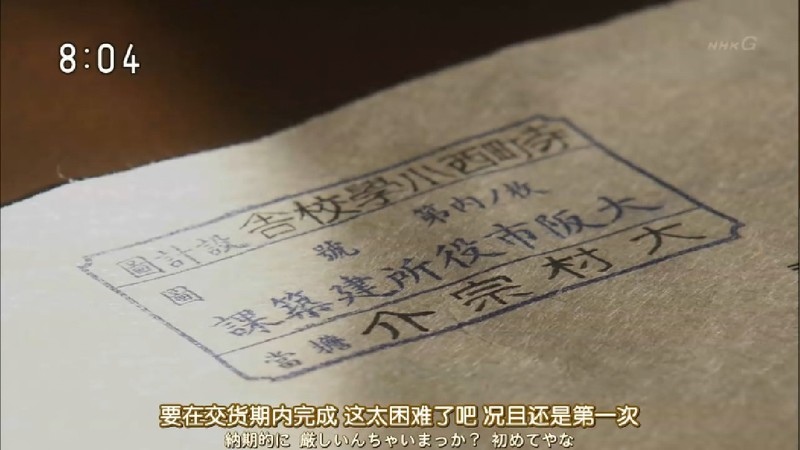 8:04
NHKG
寺町西小學校舎設計圖
枚ノ内第 號 圖
大阪市役所建築課
大村宗介 擔當
要在交货期内完成 这太困难了吧 况且还是第一次
納期的に 厳しいんちゃいまっか? 初めてやな